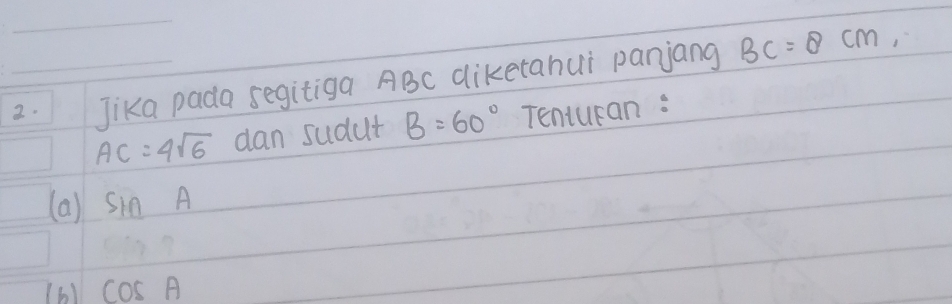 2. Jika pada segitiga ABC diketahui panjang BC = 8 cm,
AC = 4√6 dan sudut B = 60° Tentukan :
(a) sin A
(b) cos A